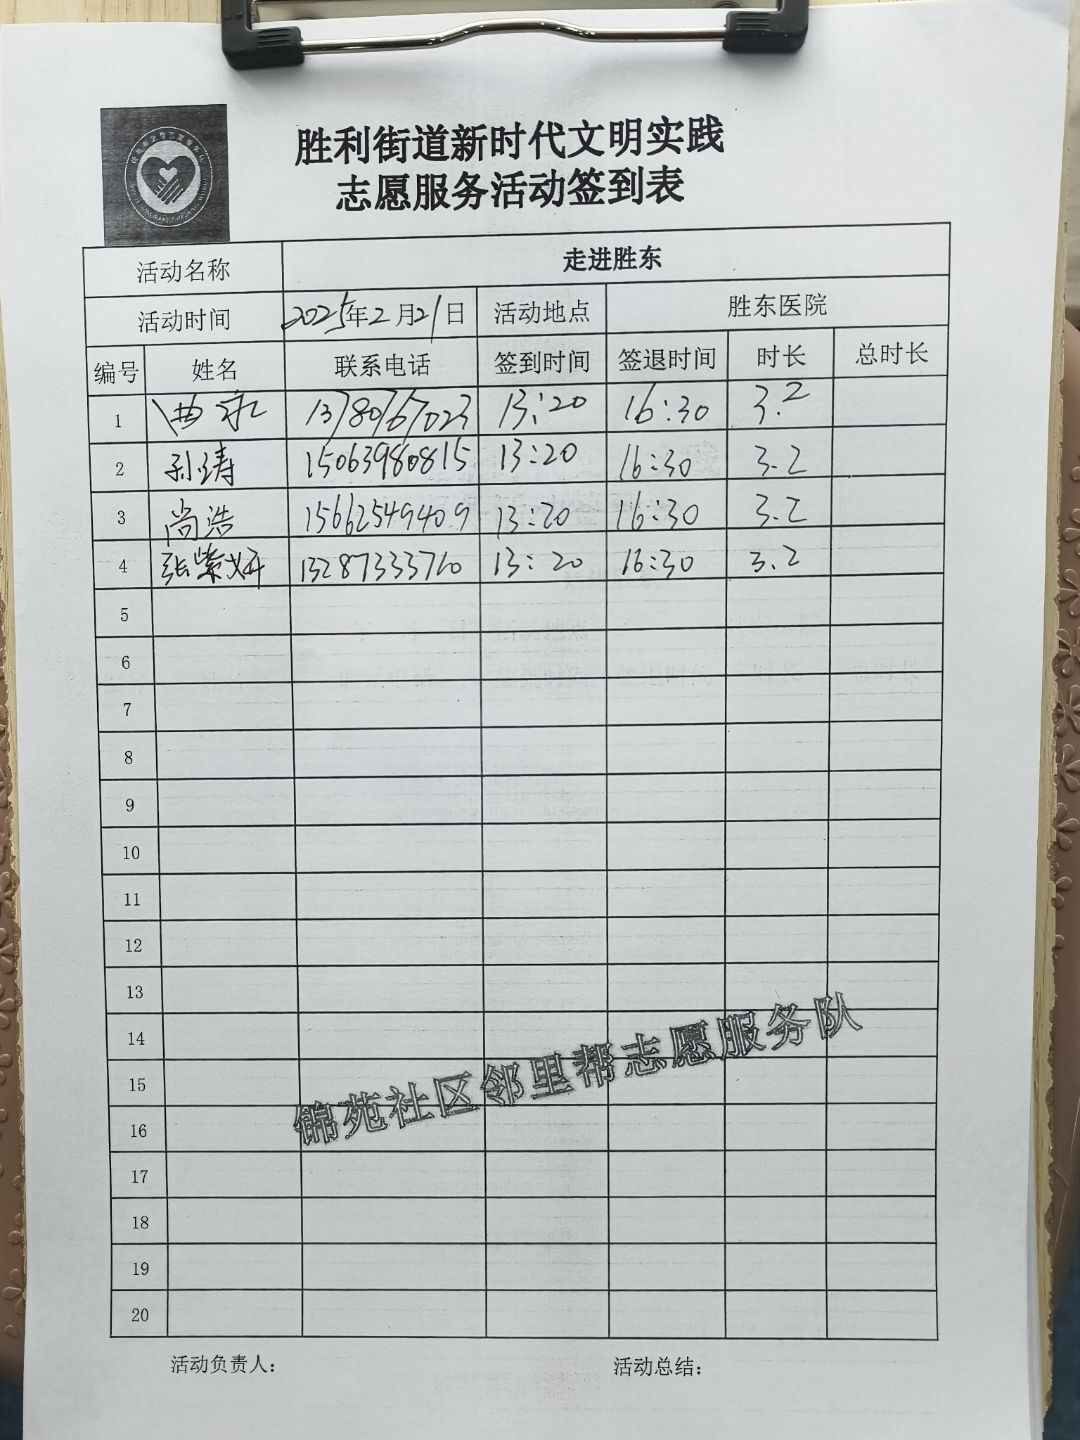 胜利街道新时代文明实践
志愿服务活动签到表
活动名称 走进胜东
活动时间 2025年2月21日 活动地点 胜东医院
编号 姓名 联系电话 签到时间 签退时间 时长 总时长
1 曲永 13780767023 13:20 16:30 3.2
2 孙涛 15063980815 13:20 16:30 3.2
3 尚浩 15662549409 13:20 16:30 3.2
4 张紫妍 13287333710 13:20 16:30 3.2
5
6
7
8
9
10
11
12
13
14
15
16
17
18
19
20
锦苑社区邻里帮志愿服务队
活动负责人: 活动总结: